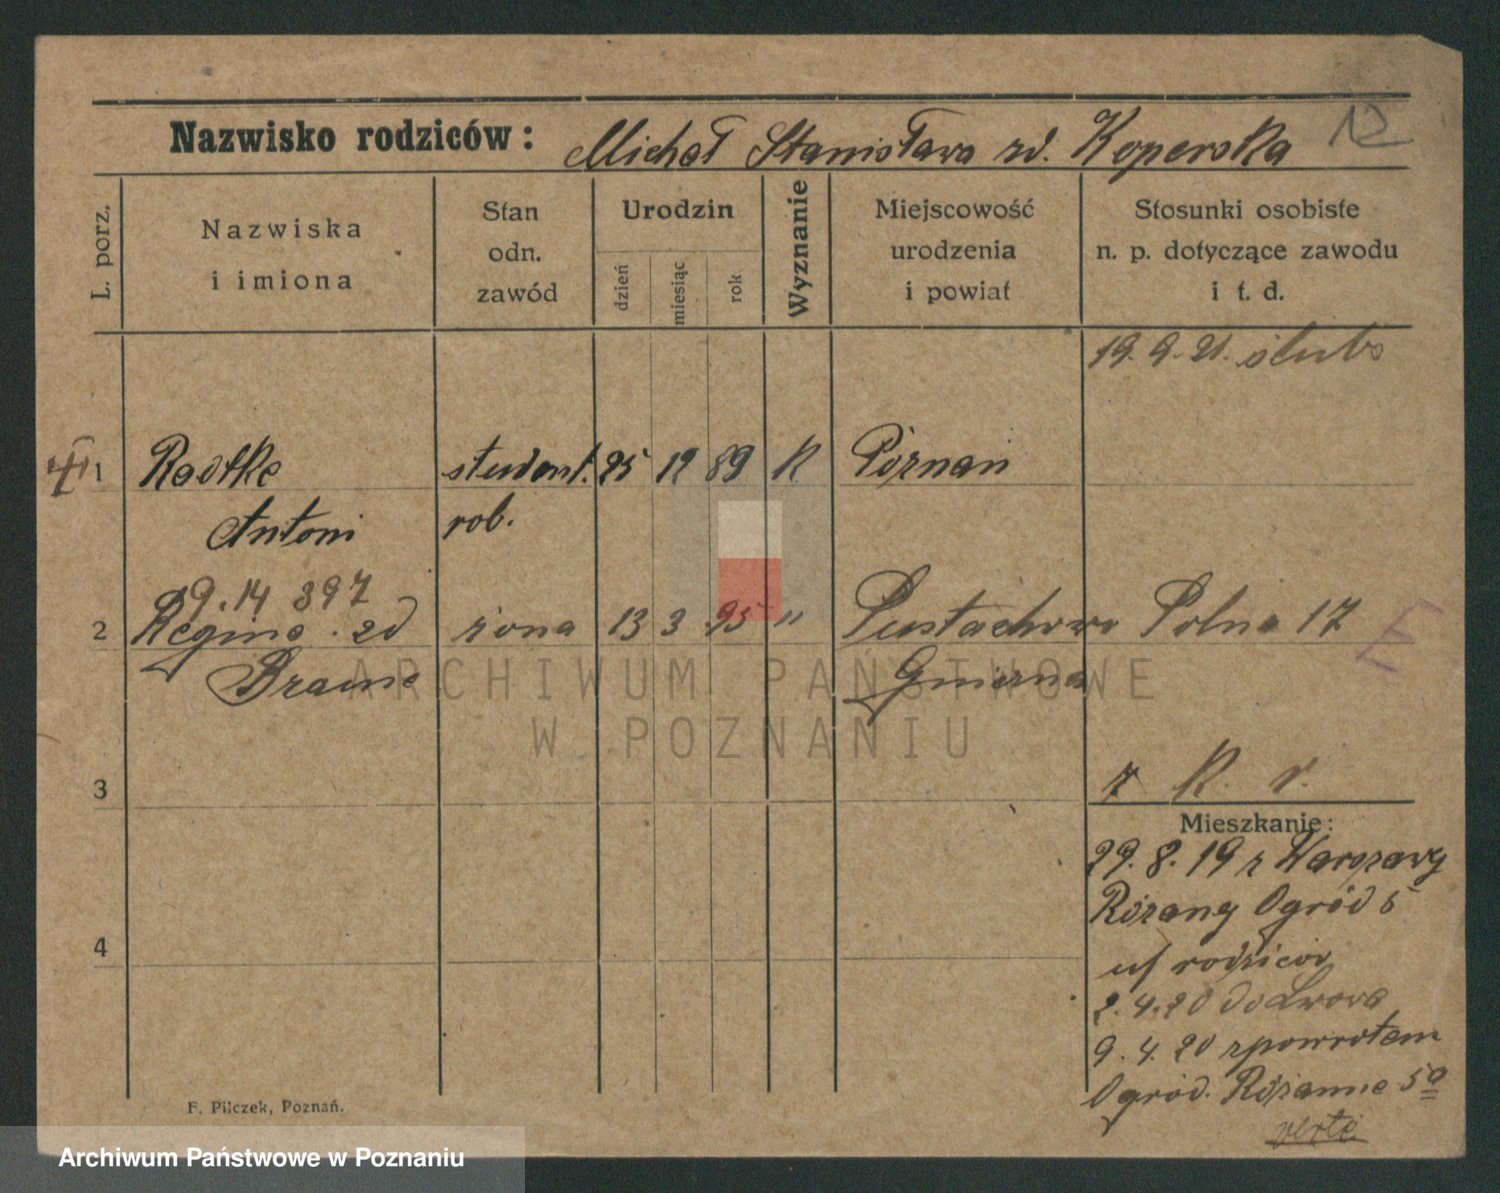 Nazwisko rodziców: Michał Stanisława zd. Koperska 12
L. porz.
Nazwiska i imiona
Stan odn. zawód
Urodzin
dzień miesiąc rok
Wyznanie
Miejscowość urodzenia i powiat
Stosunki osobiste n. p. dotyczące zawodu i t. d.
19. 9. 21. ślub
1 Radtke student. 25 12 89 K. Poznań
Antoni rob.
9.14 397
2 Regina zd żona 13 3 95 " Pustachowo Polna 17
Gniezna
7 K. r.
3
Mieszkanie:
29. 8. 19 z Warszawy
Różany Ogród 5
u/ rodziców
4
2. 4. 20 do Lwowa
9. 4. 20 zpowrotem
Ogród. Różanne 5a
verte
F. Pilczek, Poznań.
ARCHIWUM PAŃSTWOWE
W POZNANIU
Archiwum Państwowe w Poznaniu